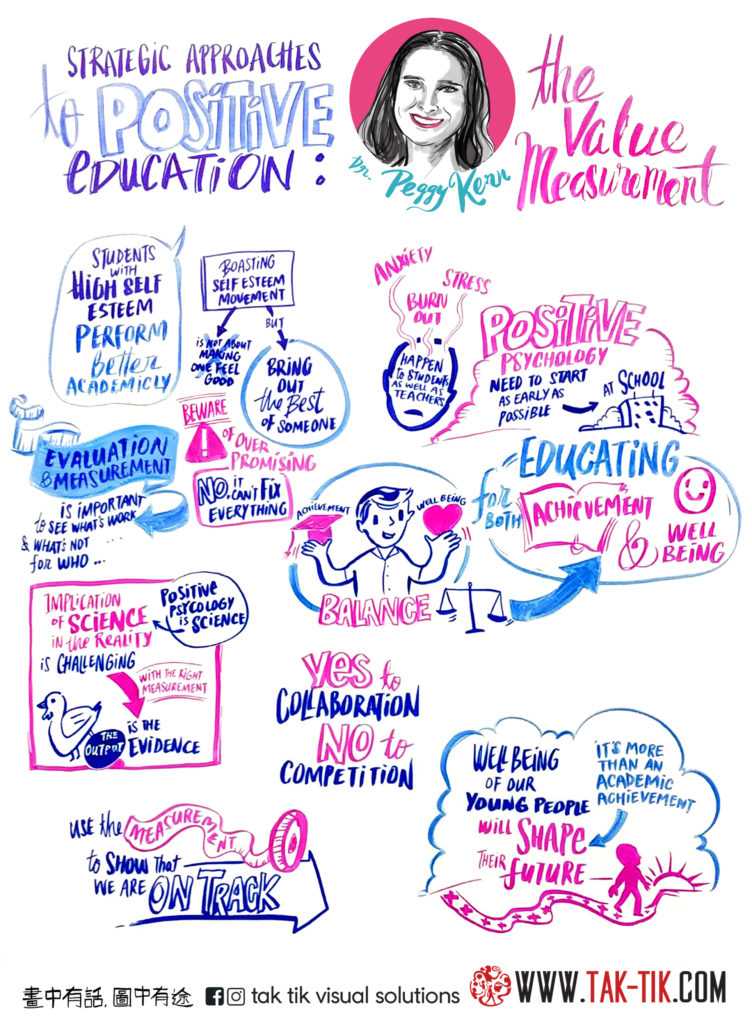 STRATEGIC APPROACHES
to POSITIVE
EDUCATION :
Dr. Peggy Kern
the
Value
Measurement
STUDENTS
WITH
HIGH SELF
ESTEEM
PERFORM
better
ACADEMICLY
BOASTING
SELF ESTEEM
MOVEMENT
IS NOT ABOUT
MAKING
ONE FEEL
GOOD
BUT
BRING
OUT
the Best
OF SOMEONE
ANXIETY
STRESS
BURN
OUT
HAPPEN
TO STUDENTS
AS WELL AS
TEACHERS
POSITIVE
PSYCHOLOGY
NEED TO START
AS EARLY AS
POSSIBLE
AT SCHOOL
EVALUATION
& MEASUREMENT
IS IMPORTANT
to SEE WHAT'S WORK
& WHAT'S NOT
for WHO ...
BEWARE
OF OVER
PROMISING
NO, IT
CAN'T FIX
EVERYTHING
ACHIEVEMENT
WELL BEING
BALANCE
EDUCATING
for
BOTH
ACHIEVEMENT
& WELL
BEING
IMPLICATION
OF SCIENCE
IN the REALITY
IS CHALLENGING
POSITIVE
PSYCOLOGY
IS SCIENCE
WITH THE RIGHT
MEASUREMENT
THE
OUTPUT
IS THE
EVIDENCE
YES to
COLLABORATION
NO to
COMPETITION
USE the MEASUREMENT
to SHOW that
WE ARE ON TRACK
WELL BEING
OF OUR
YOUNG PEOPLE
WILL SHAPE
THEIR FUTURE
IT'S MORE
THAN AN
ACADEMIC
ACHIEVEMENT
畫中有話, 圖中有途
tak tik visual solutions
WWW.TAK-TIK.COM